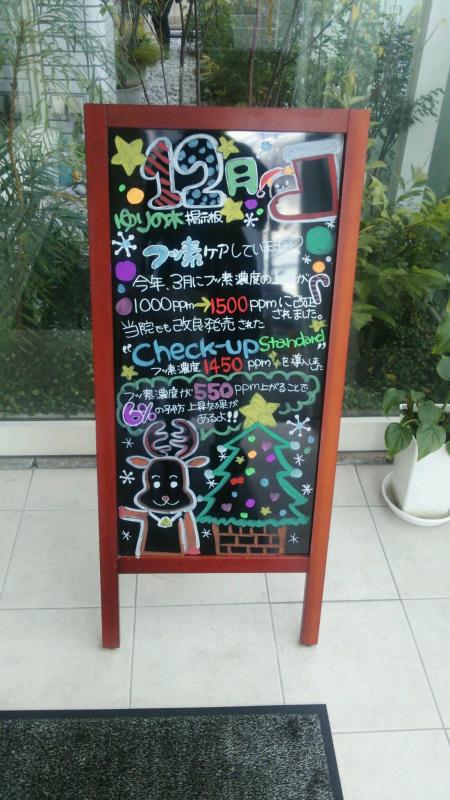 12月
ゆりの木 掲示板
フッ素ケアしていますか
今年、3月にフッ素濃度の上限が
1000ppm→1500ppmに改正
されました。
当院でも改良発売された
"Check-up Standard"
フッ素濃度 1450 ppm を導入しました
フッ素濃度が550ppm上がることで
6%の予防上昇効果が
あるよ!!